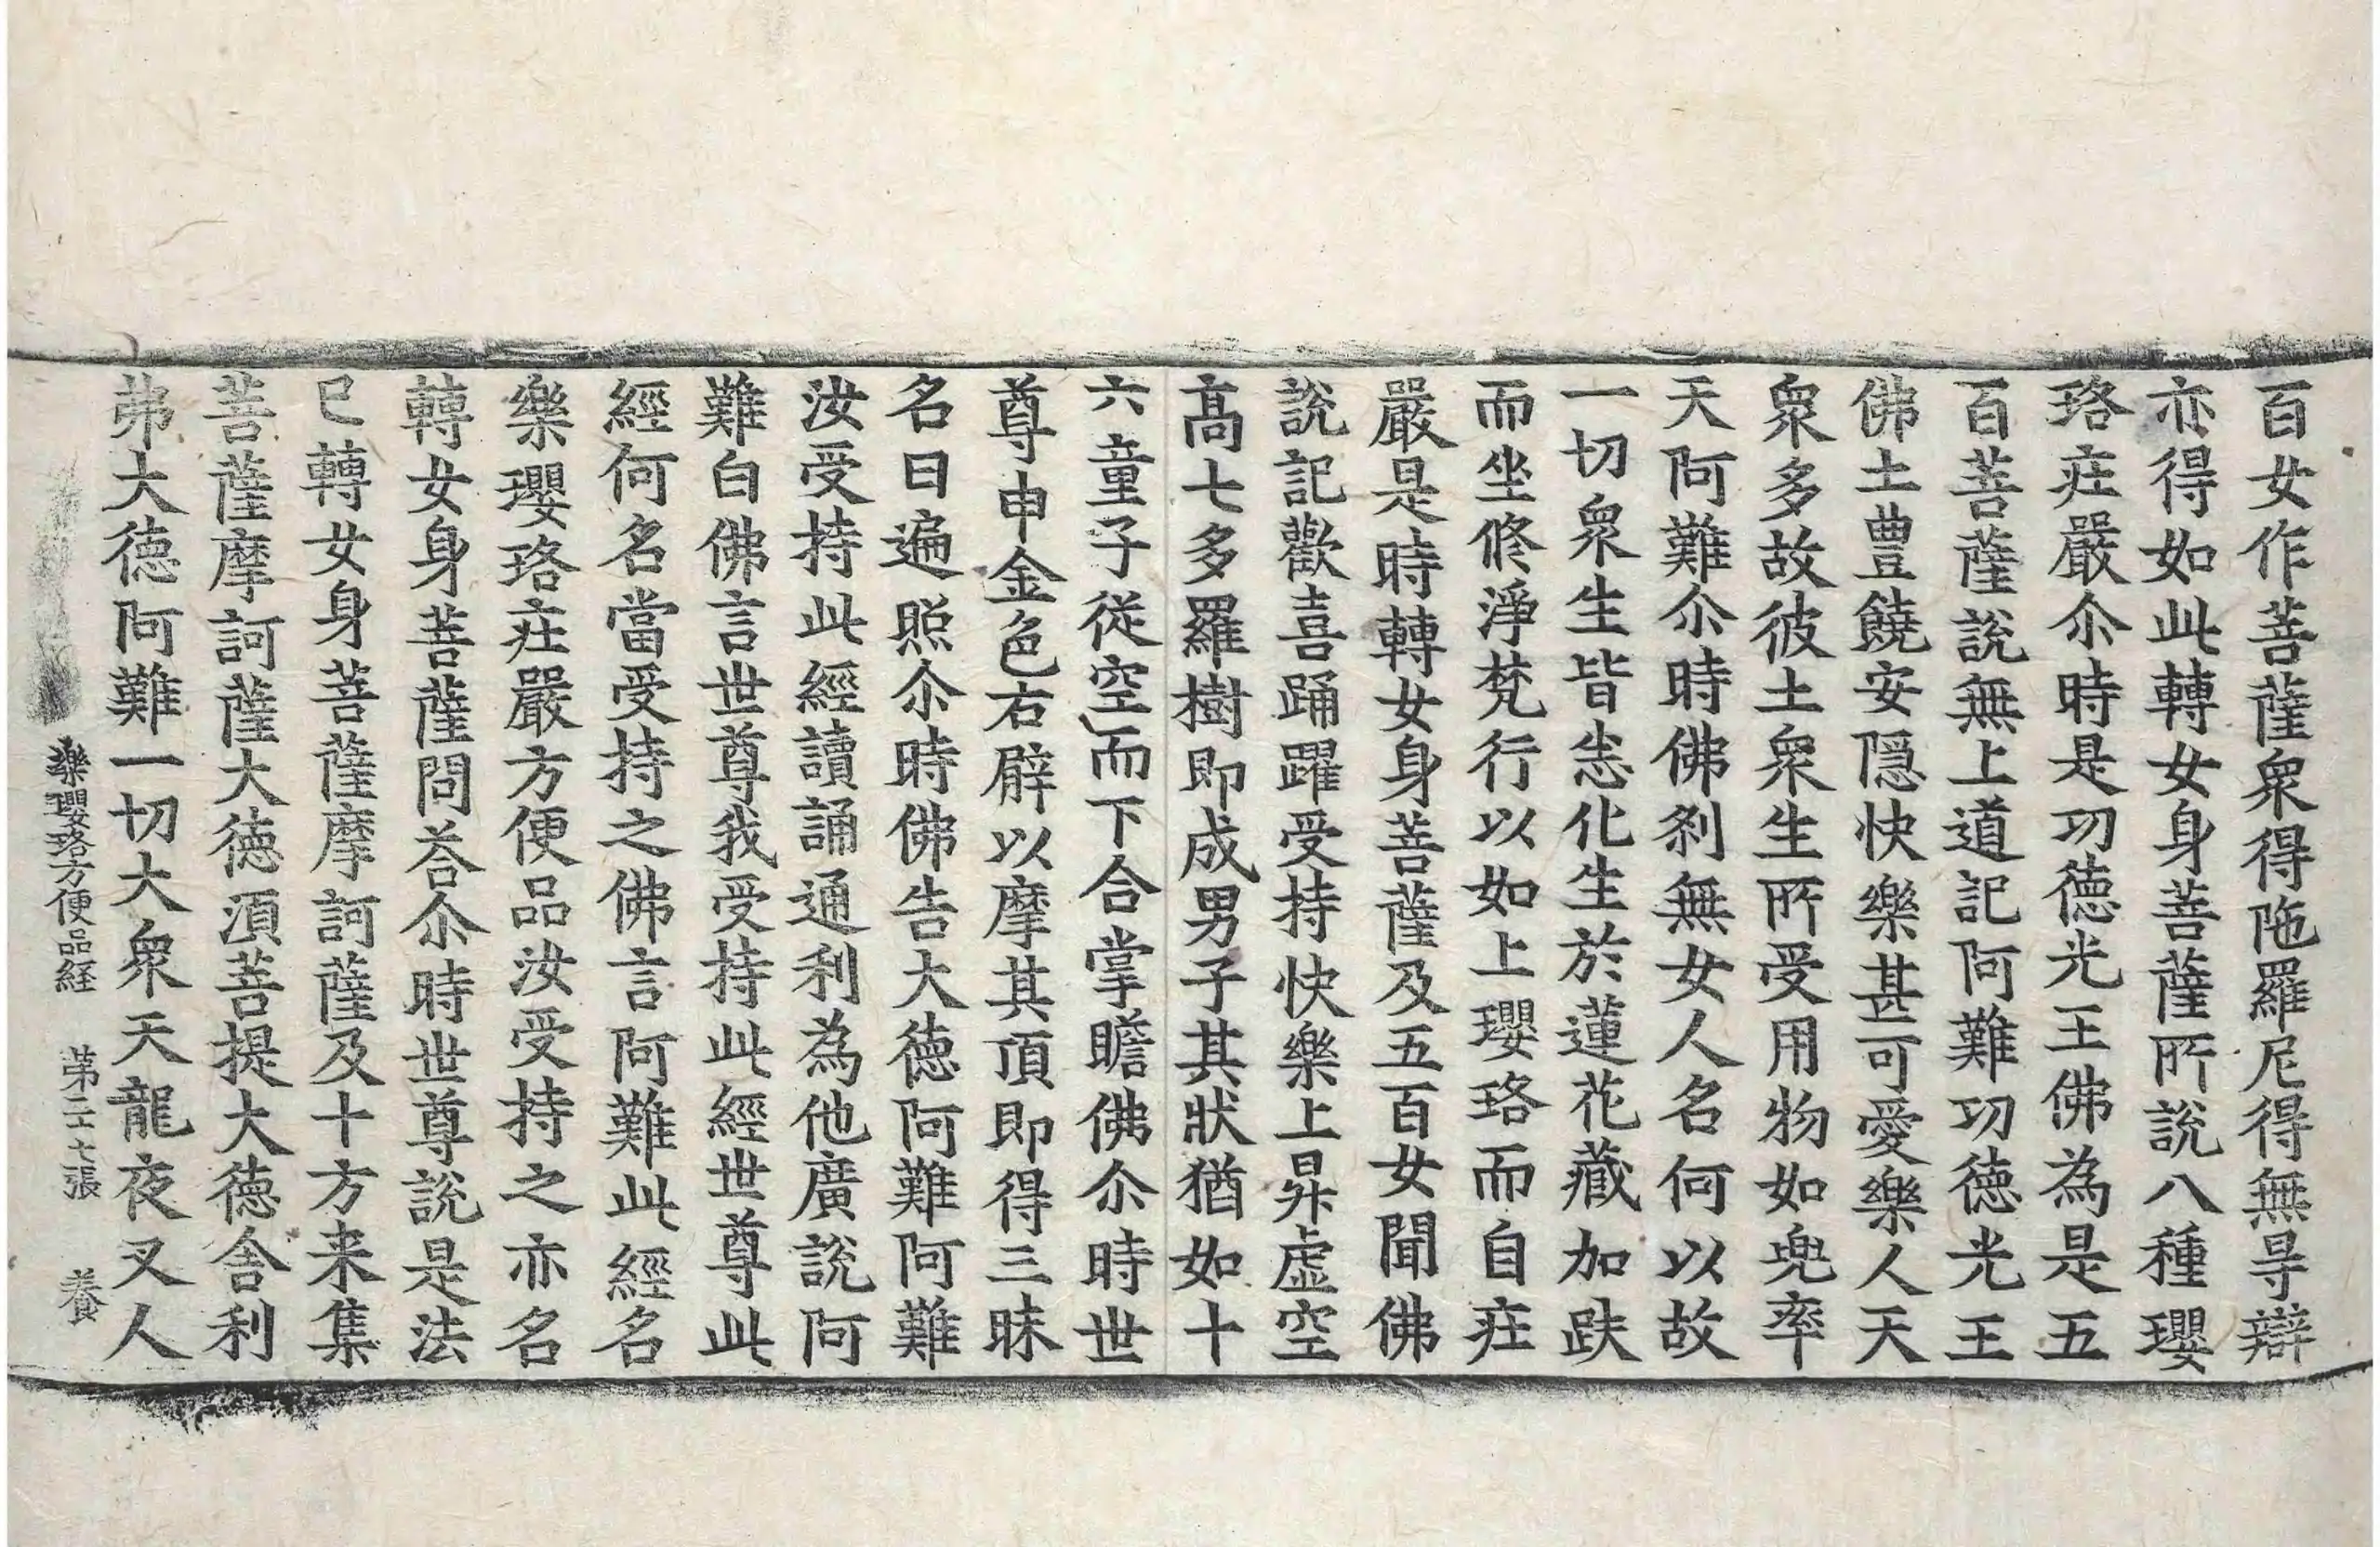 百女作菩薩衆得陁羅尼得無㝵辯
亦得如此轉女身菩薩所說八種瓔
珞莊嚴尒時是功德光王佛為是五
百菩薩說無上道記阿難功德光王
佛土豊饒安隠快樂甚可愛樂人天
衆多故彼土衆生所受用物如兜率
天阿難尒時佛剎無女人名何以故
一切衆生皆悉化生於蓮花藏加趺
而坐修淨梵行以如上瓔珞而自莊
嚴是時轉女身菩薩及五百女聞佛
說記歡喜踊躍受持快樂上昇虛空
髙七多羅樹即成男子其狀猶如十
六童子従空而下合掌瞻佛尒時世
尊申金色右臂以摩其頂即得三昧
名曰遍照尒時佛告大德阿難阿難
汝受持此經讀誦通利為他廣說阿
難白佛言世尊我受持此經世尊此
經何名當受持之佛言阿難此經名
樂瓔珞莊嚴方便品汝受持之亦名
轉女身菩薩問荅尒時世尊說是法
已轉女身菩薩摩訶薩及十方来集
菩薩摩訶薩大德湏菩提大德舍利
弗大德阿難一切大衆天龍夜叉人
樂瓔珞方便品経 第二十七張 養